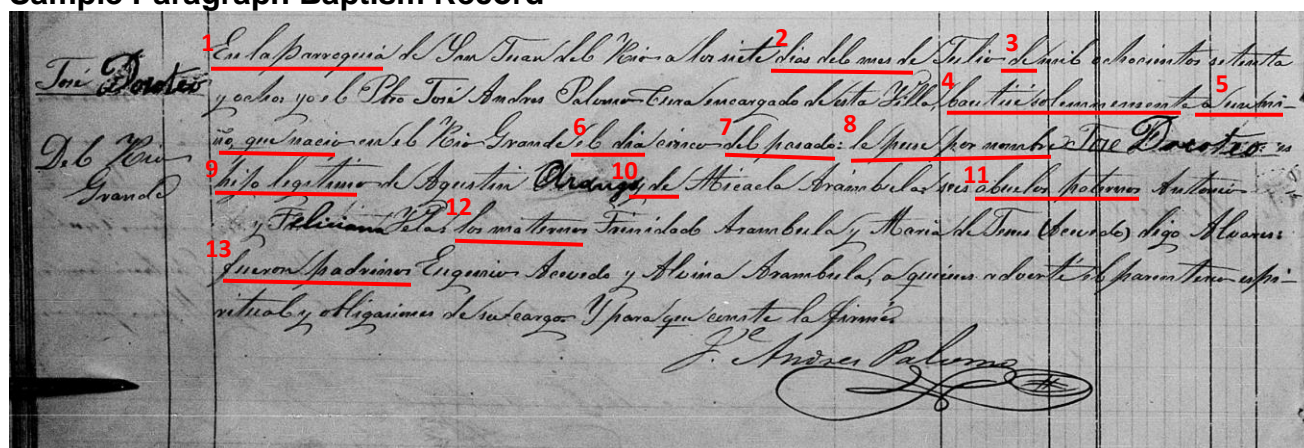 Sample Paragraph Baptism Record
1 2 3
En la parroquia de San Juan del Rio a los siete dias del mes de Julio de mil ochocientos setenta
José Doroteo
4 5
y ocho: yo el Pbro José Andres Palomo Cura encargado de esta Villa, bautisé solemnemente a un ni-
6 7 8
ño, que nacio en el Rio Grande el dia cinco del pasado: le puse por nombre José Doroteo: es
Del Rio
Grande
9 10 11
hijo legitimo de Agustin Arango, y de Micaela Arambula, seis abuelos paternos Antonio
12
y Feliciana Vela: los maternos Trinidad Arambula y Maria de Jesus (Acevedo) digo Alvares:
13
fueron padrinos Eugenio Acevedo y Alvina Arambula, a quienes advertí el parentesco espi-
ritual y obligaciones de su cargo. Y para que conste la firmé.
J.e Andres Palomo